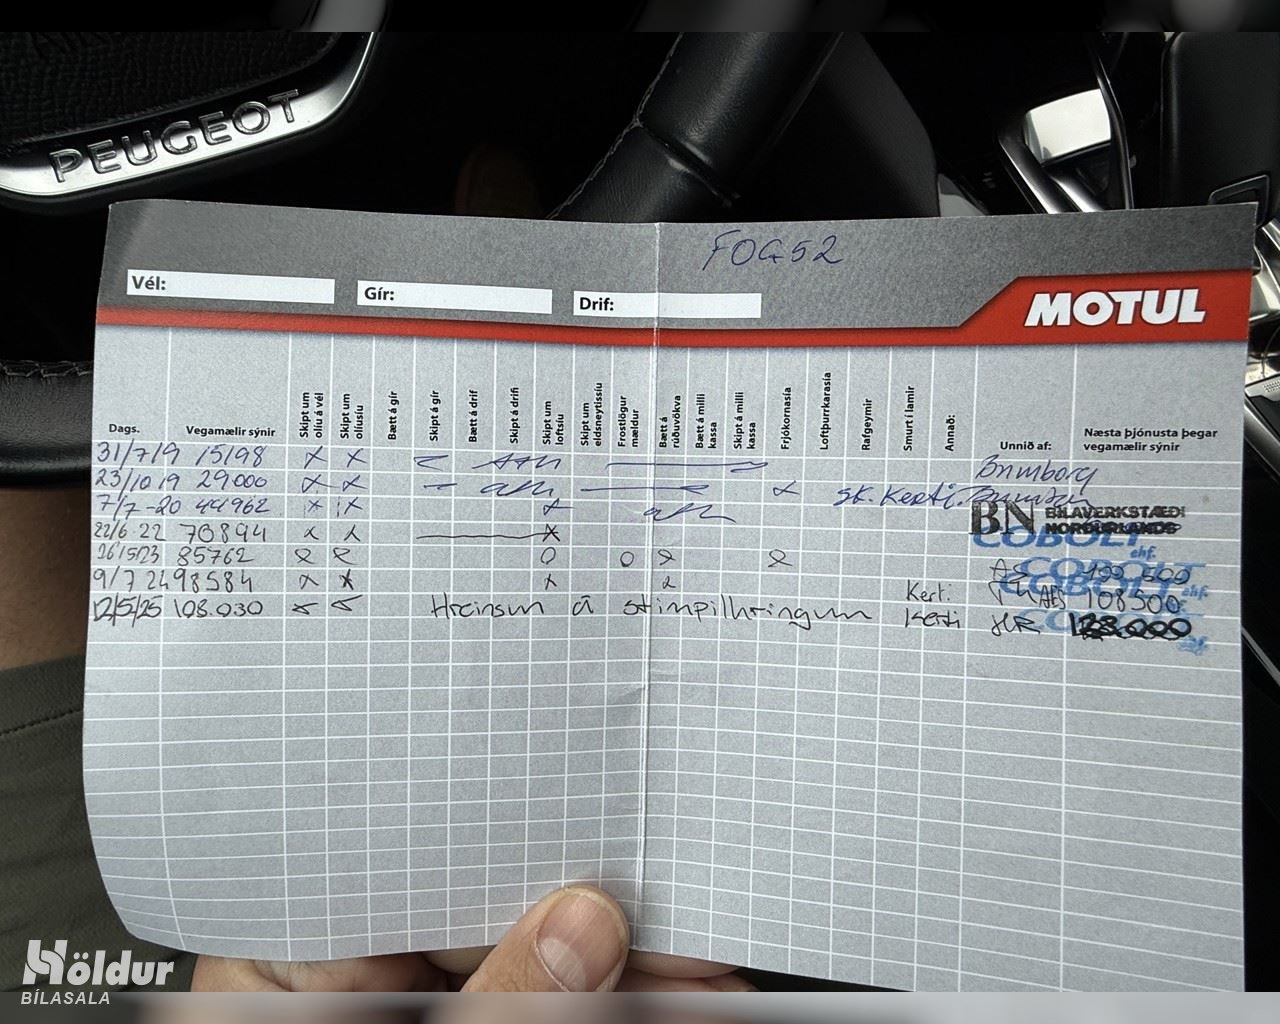 PEUGEOT
FOG52
Vél:
Gír:
Drif:
MOTUL
Dags.
Vegamælir sýnir
Skipt um olíu á vél
Skipt um olíusíu
Bætt á gír
Skipt á gír
Bætt á drif
Skipt á drifi
Skipt um loftsíu
Skipt um eldsneytissíu
Frostlögur mældur
Bætt á rúðuvökva
Bætt á milli kassa
Skipt á milli kassa
Frjókornasía
Loftþurrkarasía
Rafgeymir
Smurt í lamir
Annað:
Unnið af:
Næsta þjónusta þegar vegamælir sýnir
31/7/19 15198 x x Brimborg
23/10 19 29000 x x x sk. Kerti. Brimborg
7/7-20 44962 x x x
BN BÍLAVERKSTÆÐI NORÐURLANDS
22/6-22 70894 x x x COBOLT ehf.
16/5/23 85762 x x O O x x AS 100 500 COBOLT ehf.
9/7 24 98584 x x x x Kerti 108500
12/5/25 108.030 x x Hreinsun á stimpilhringum Kerti HR
Höldur
BÍLASALA